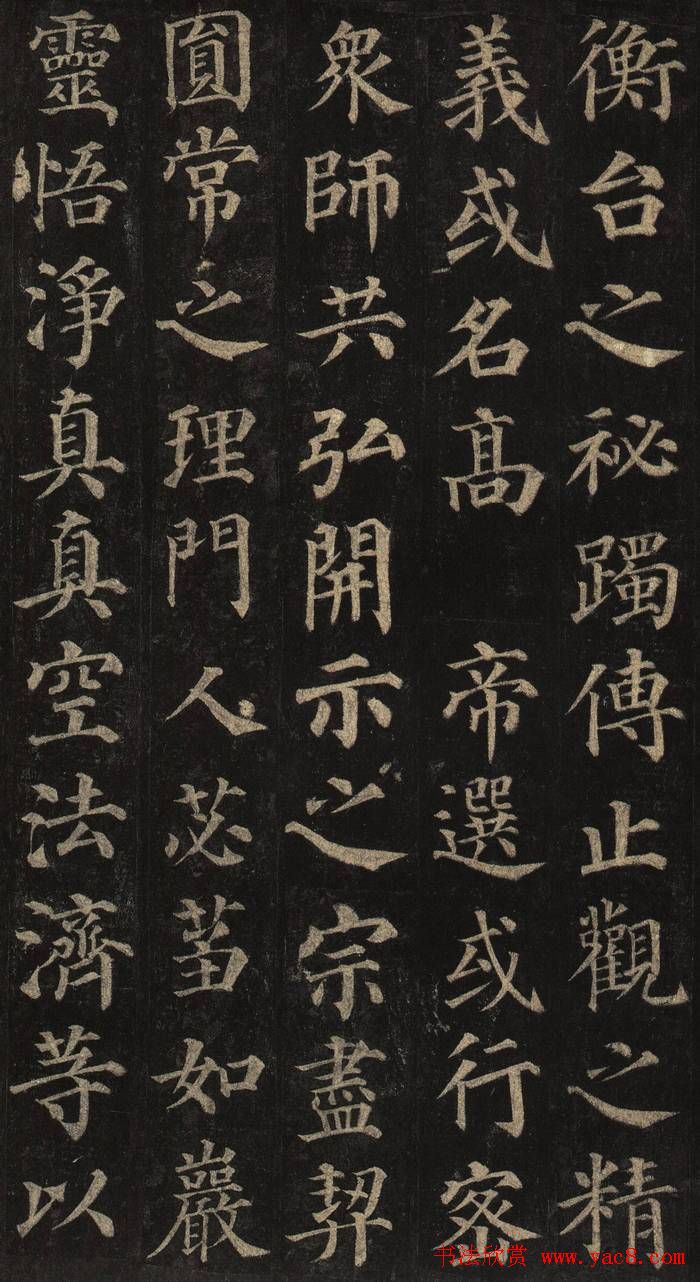 衡台之祕躅傳止觀之精
義或名髙 帝選或行宻
衆師共弘開示之宗盡契
圎常之理門人苾蒭如巖
靈悟淨真真空法濟等以
书法欣赏 www.yac8.com